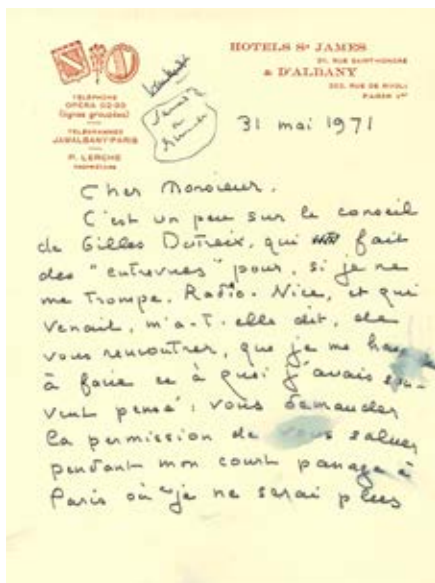 HOTELS St JAMES
211, RUE SAINT-HONORE
& D'ALBANY
202, RUE DE RIVOLI
PARIS 1er
TELEPHONE
OPERA 02-30
(lignes groupées)
TELEGRAMMES
JAMALBANY-PARIS
P. LERCHE
PROPRIETAIRE
31 mai 1971
Cher Monsieur,
C'est un peu sur le conseil
de Gilles Dutreix, qui fait
des "entrevues" pour, si je ne
me trompe, Radio-Nice, et qui
venait, m'a-t-elle dit, de
vous rencontrer, que je me
à faire ce à quoi j'avais sou-
vent pensé : vous demander
la permission de vous saluer
pendant mon court passage à
Paris où je ne serai plus